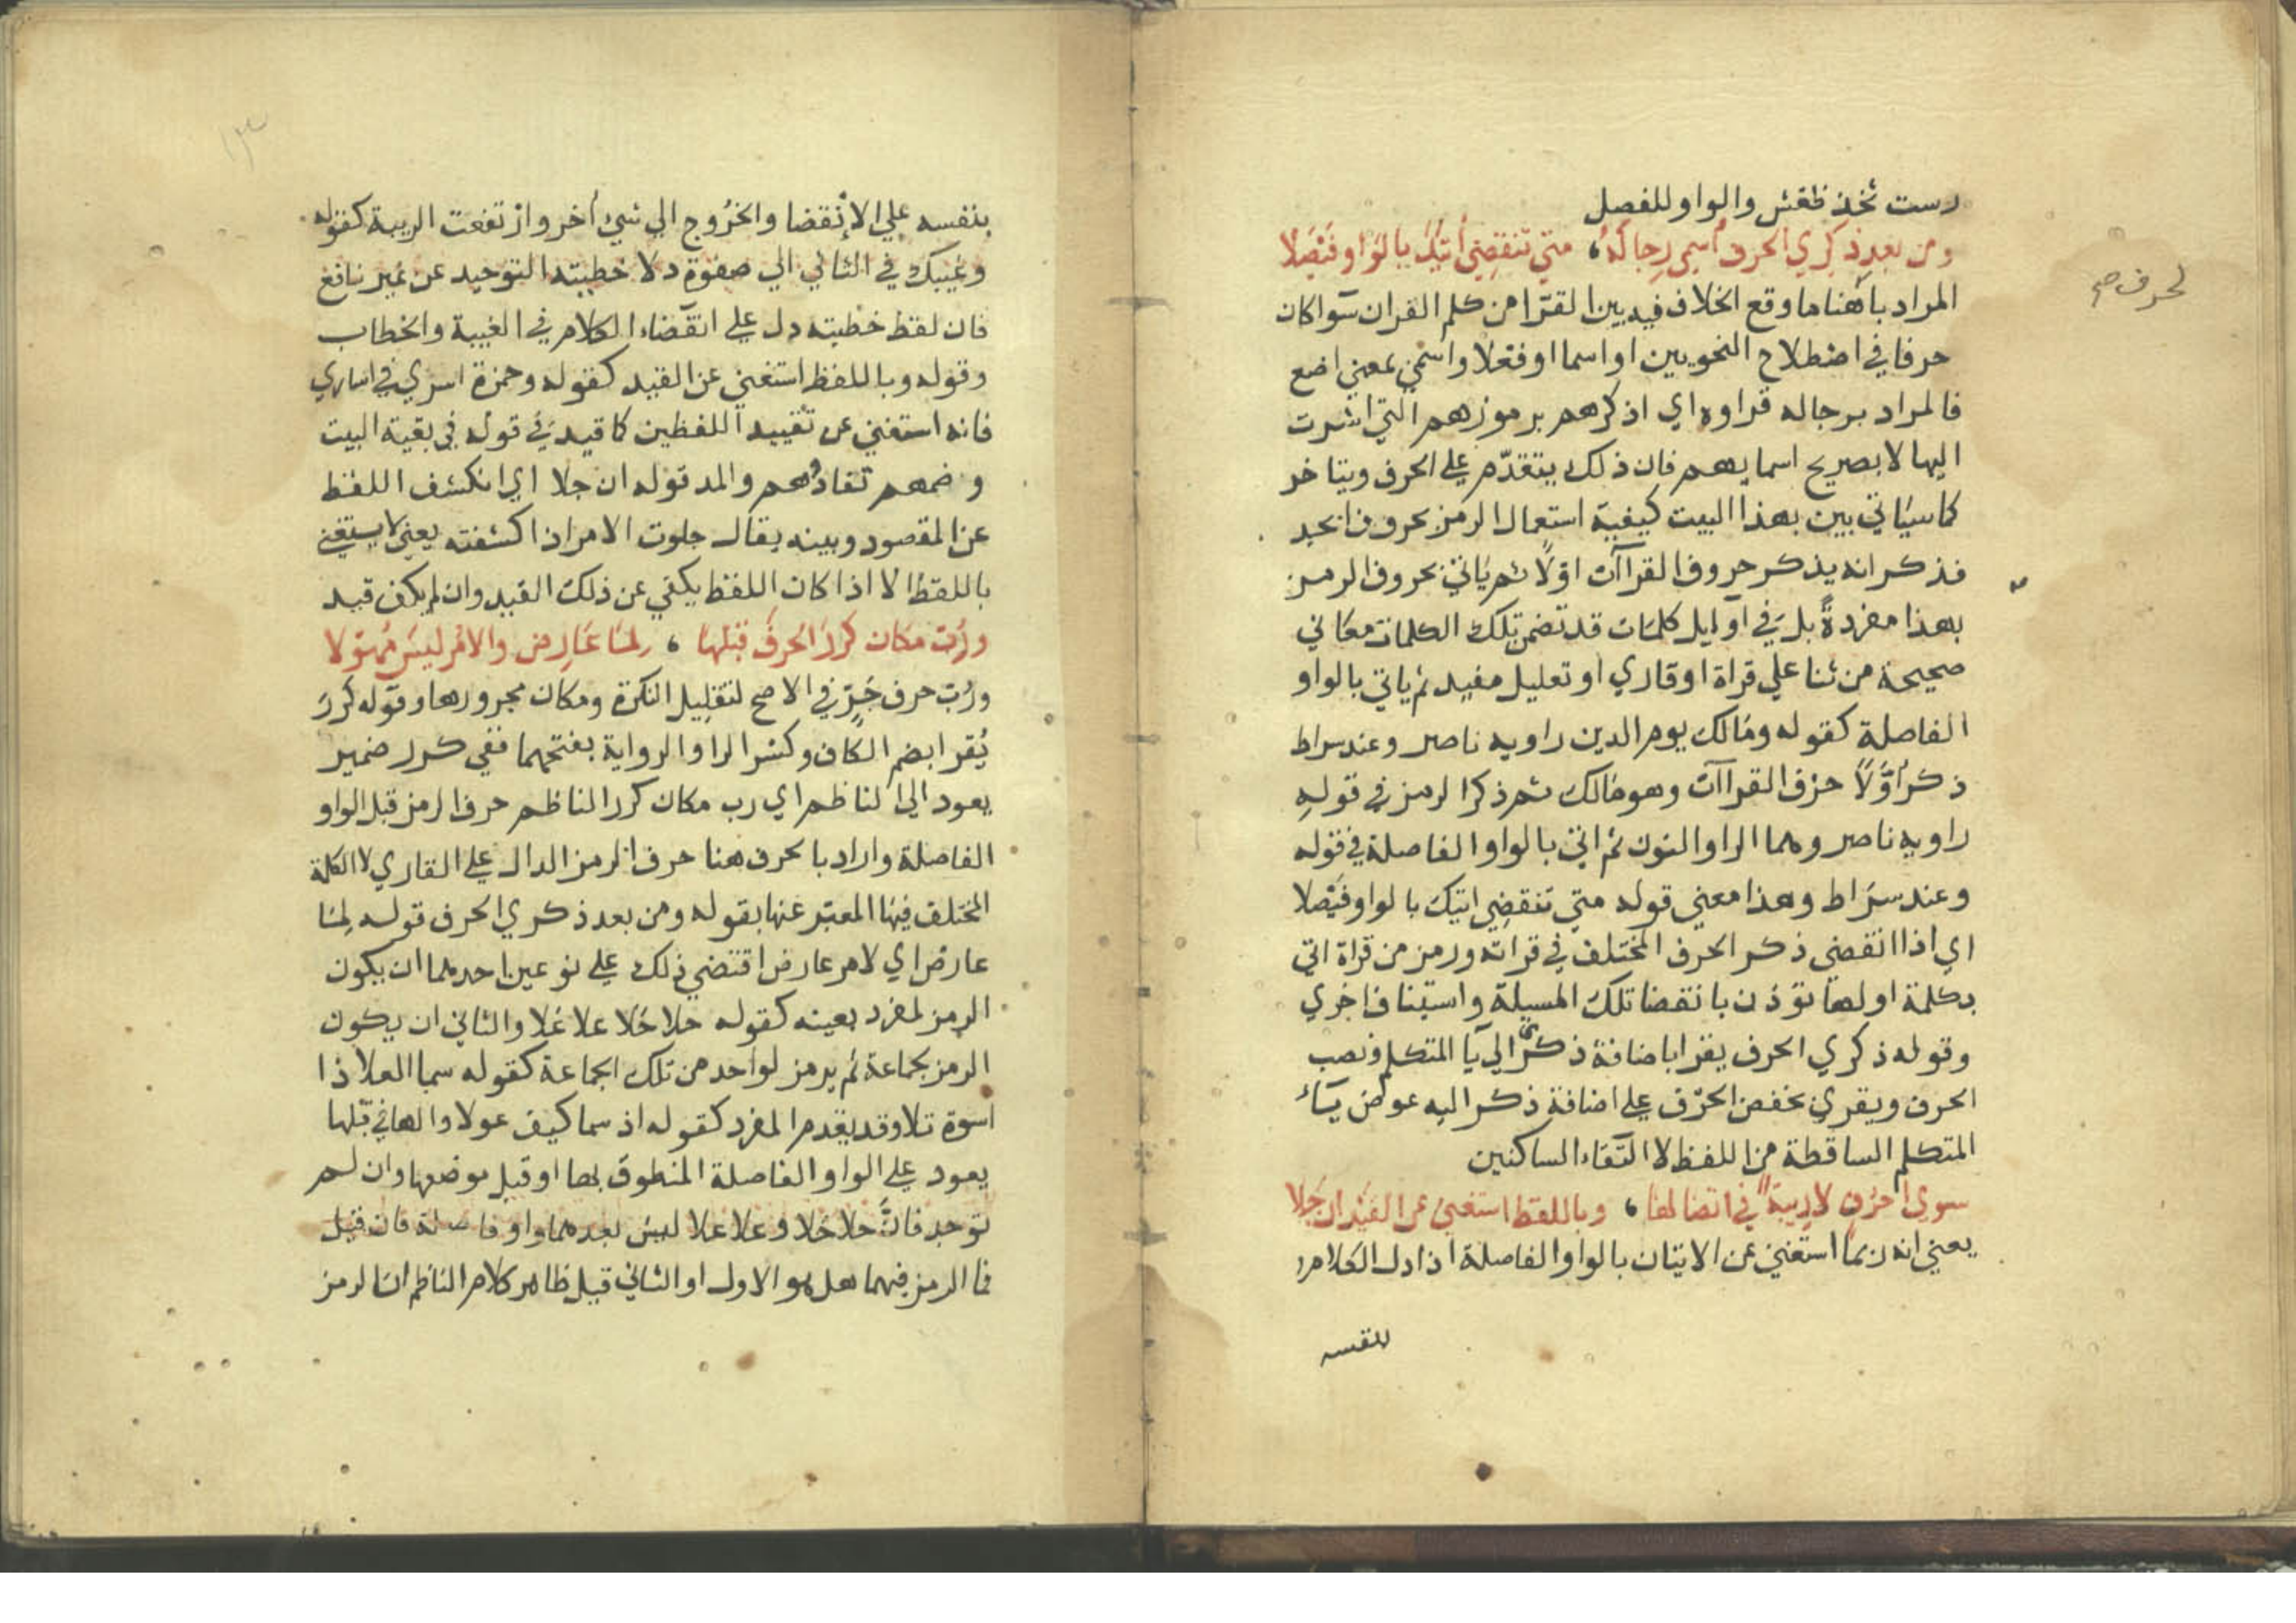 رست ثخذ ظغش والواو للفصل
ومن بعد ذكري الحرف اسمي رجاله، متي تنقضي اتيك بالواو فيصلا
المراد باهنا ما وقع الخلاف فيه بين القرا من كلم القران سوا كان
لحرف صح
حرفا في اصطلاح النحويين او اسما او فعلا واسمي بمعني اضع
فالمراد برجاله قراوه اي اذكرهم برموزهم التي اشرت
اليها لا بصريح اسمايهم فان ذلك يتقدم علي الحرف ويتاخر
كما سياتي بين بهذا البيت كيفية استعمال الرمز بحروف ابجد
فذكر انه يذكر حروف القراآت اولا ثم ياتي بحروف الرمز
بهذا مفردة بل في اوايل كلمات قد تضمن تلك الكلمات معاني
صحيحة من ثنا علي قراة او قاري او تعليل مفيد ثم ياتي بالواو
الفاصلة كقوله ومالك يوم الدين راويه ناصر وعند سراط
ذكر اولا حرف القراآت وهو مالك ثم ذكر الرمز في قوله
راويه ناصر وهما الرا والنون ثم اتي بالواو الفاصلة في قوله
وعند سراط وهذا معني قوله متي تنقضي اتيك بالواو فيصلا
اي اذا انقضي ذكر الحرف المختلف في قراته ورمز من قراة اتي
بكلمة اولها توذن بانقضا تلك المسيلة واستيناف اخري
وقوله ذكري الحرف يقرا باضافة ذكر الي يا المتكلم ونصب
الحرف ويقري بخفض الحرف علي اضافة ذكر اليه عوض ياء
المتكلم الساقطة من اللفظ لالتقاء الساكنين
سوي احرف لا ريبة في اتصالها، وباللفظ استغني عن القيد ان جلا
يعني انه ربما استغني عن الاتيان بالواو الفاصلة اذا دل الكلام
بنفسه
بنفسه علي الانقضا والخروج الي شيء اخر وارتفعت الريبة كقوله
وغيبك في الثاني الي صفوه دلا خطيته التوحيد عن غير نافع
فان لفظ خطيته دل علي انقضاء الكلام في الغيبة والخطاب
وقوله وباللفظ استغني عن القيد كقوله وحمزة اسري في اساري
فانه استغني عن تقييد اللفظين كما قيد في قوله في بقية البيت
وضمهم تفادوهم والمد قوله ان جلا اي انكشف اللفظ
عن المقصود وبينه يقال جلوت الامر اذا كشفته يعني لا يستغني
باللفظ الا اذا كان اللفظ يكفي عن ذلك القيد وان لم يكف قيد
ورب مكان كرر الحرف قبلها، لما عارض والامر ليس مهولا
ورب حرف جر في الاصح لتقليل النكرة ومكان مجرورها وقوله كرر
يقرا بضم الكاف وكسر الرا والرواية بفتحهما ففي كرر ضمير
يعود الي الناظم اي رب مكان كرر الناظم حرف الرمز قبل الواو
الفاصلة واراد بالحرف هنا حرف الرمز الدال علي القاري لا الكلمة
المختلف فيها المعبر عنها بقوله ومن بعد ذكري الحرف قوله لما
عارض اي لامر عارض اقتضي ذلك علي نوعين احدهما ان يكون
الرمز لمفرد بعينه كقوله حلا حلا علا علا والثاني ان يكون
الرمز بجماعة ثم يرمز لواحد من تلك الجماعة كقوله سما العلا ذا
اسوة تلا وقد يقدم المفرد كقوله اذ سما كيف عولا والها في قبلها
يعود علي الواو الفاصلة المنطوق بها او قبل موضعها وان لم
توجد فان حلا حلا وعلا علا ليس بعدهما واو فاصلة فان قيل
فما الرمز فيهما هل هو الاول او الثاني قيل ظاهر كلام الناظم ان الرمز